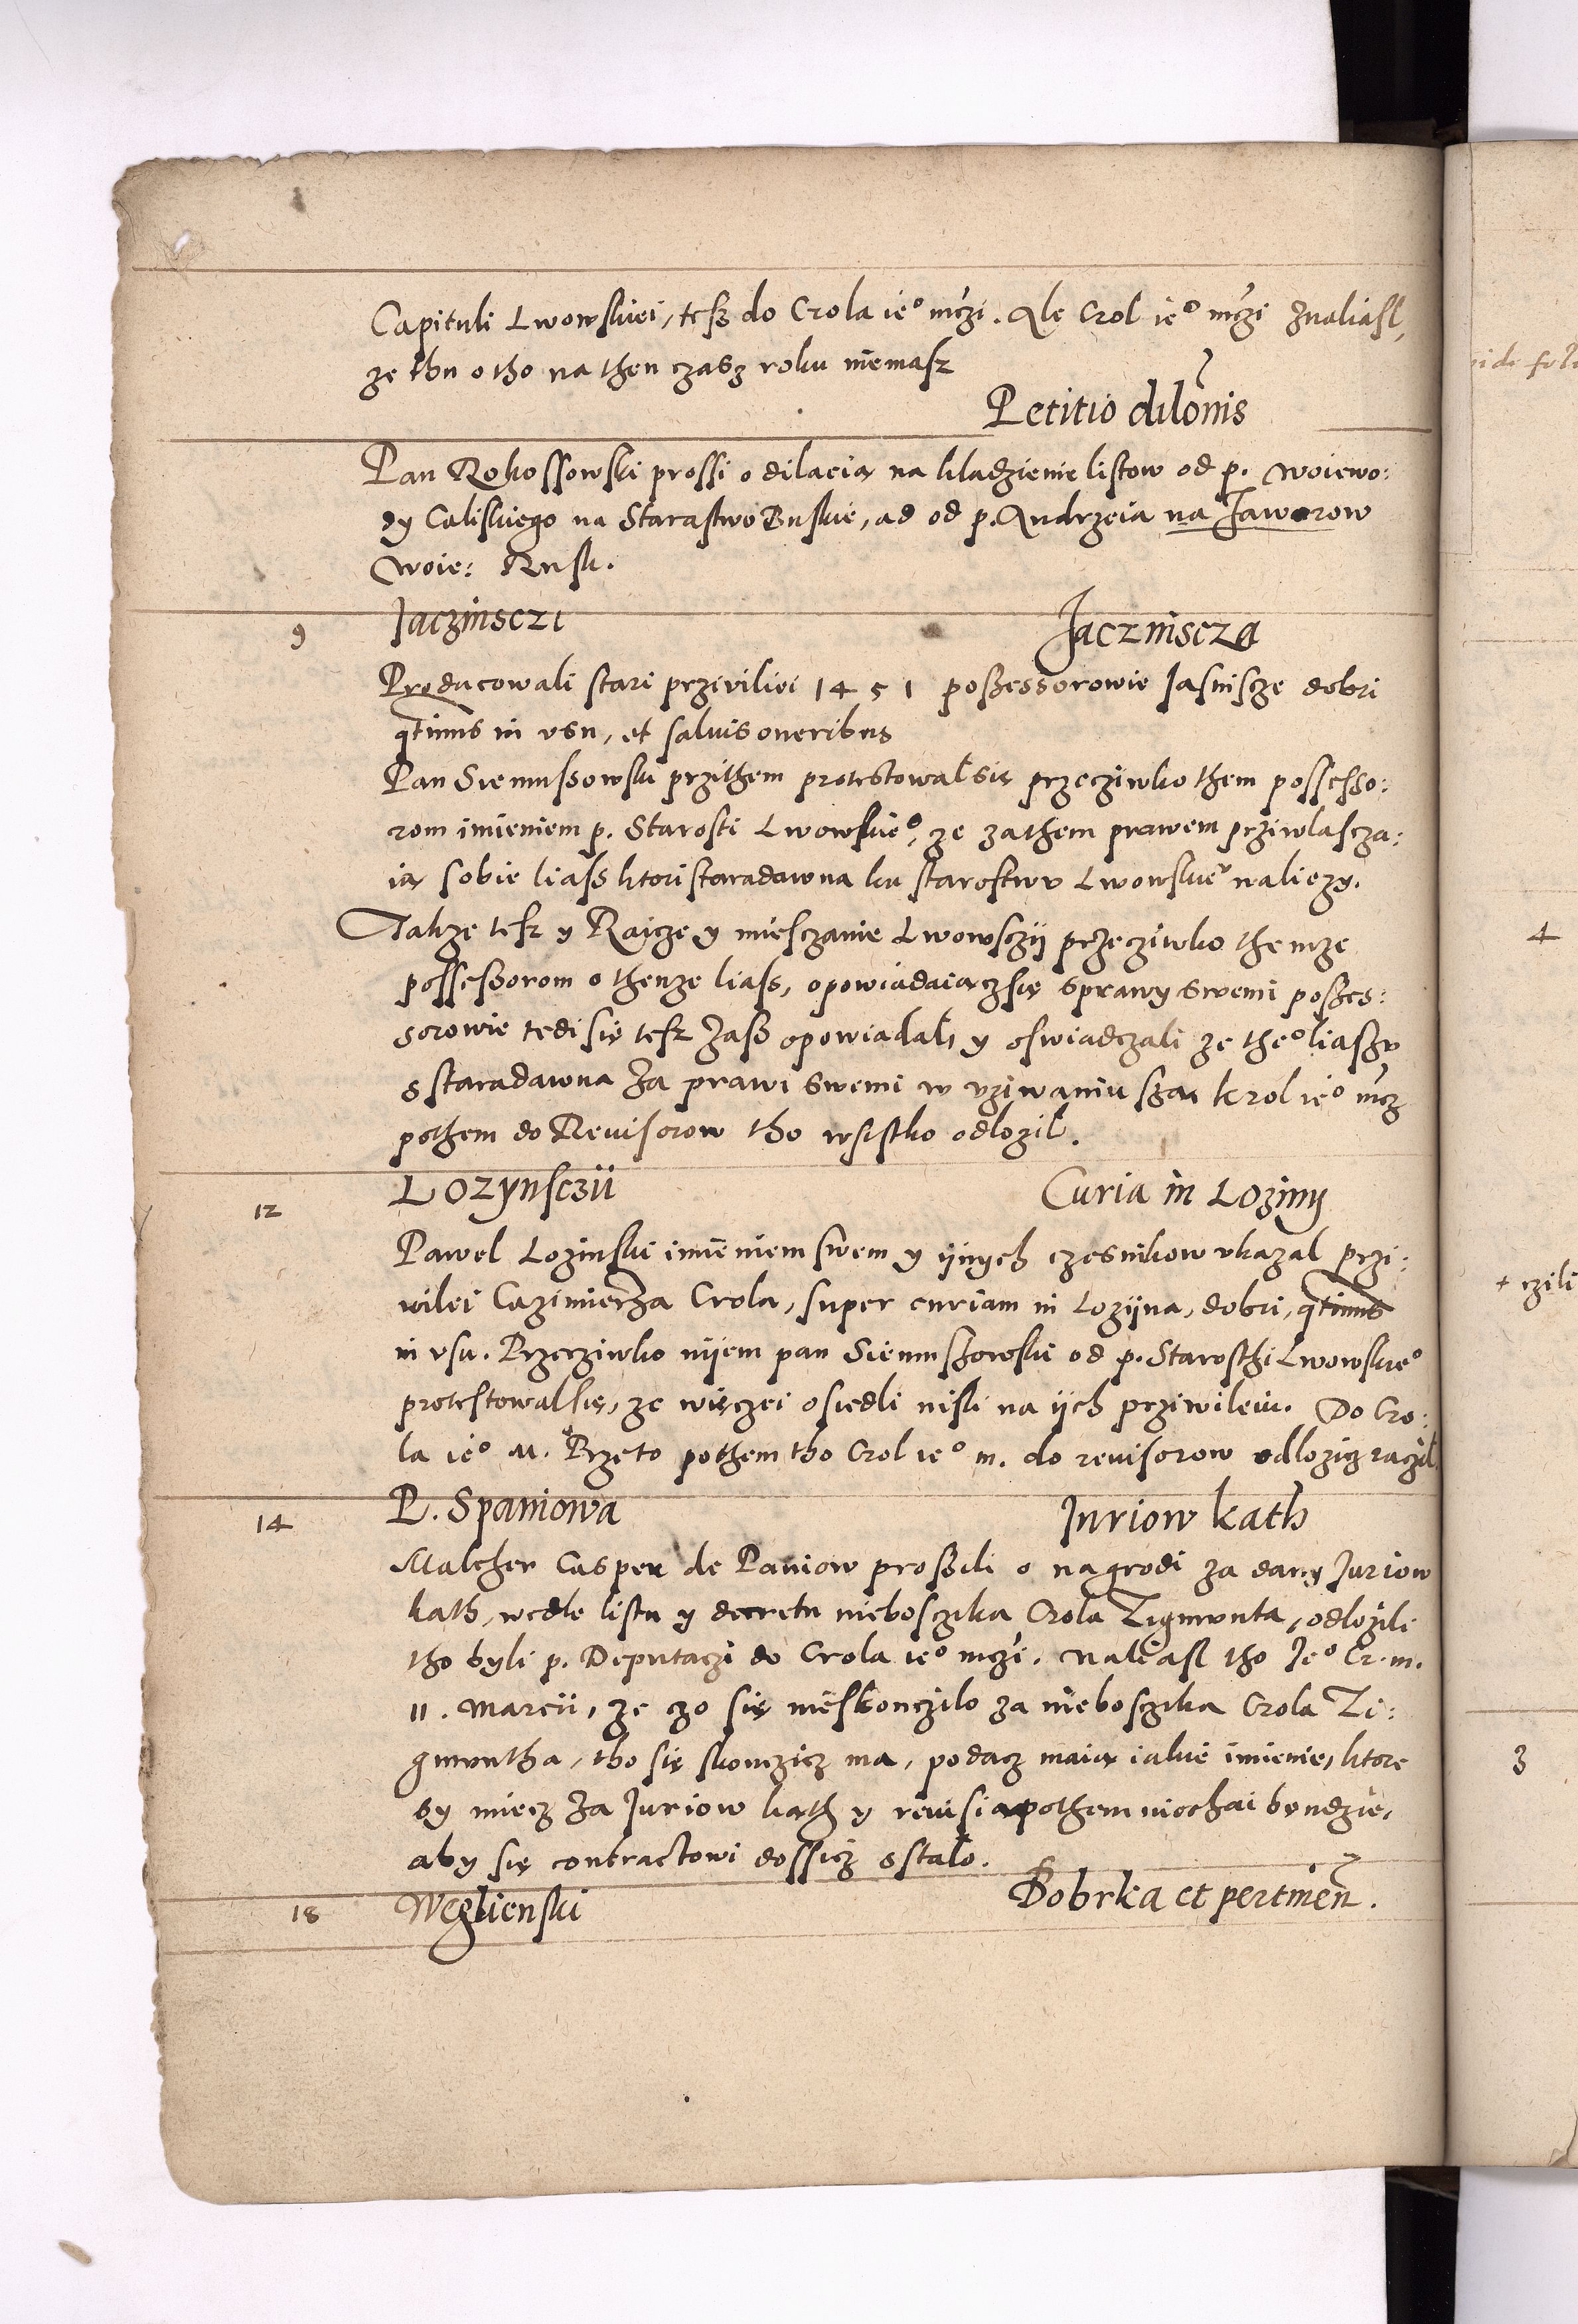 Capituli Lwowskiei, tesz do Crola ie° mczi. Ale Crol ie° mczi znaliasl,
ze tbu otho na then czasz roku niemasz
Petitio dilonis
Pan Rokossowski prossi o dilacią na kladzienie listow od p. woiewo:
dy Caliskiego na Starastwo Buskie, ad od p. Andrzeia na Jaworow
woie: Rusk.
9 Jaczinsczi Jaczniscza
Producowali stari priviliei 1451 poszessorowie Jasnisze dobri
qtinus in usu, et saluis oneribus
Pan Siemussowski przithem protestowal się przecziwko them possesso:
rom imieniem p. Starosti Lwowskie°, ze zathem prawem prziwlascza:
ią sobie liass ktori staradawna ku starostwu Lwowskie° naliezy.
Takze tesz y Raicze y miesczanie Lwowsczij przecziwko themze
possessorom o thenze liass, opowiadaiącz się sprawy swemi posses:
sorowie tedi się tesz zass opowiadali y oswiadczali ze the° liaszu
s staradawna za prawi swemi w uziwaniu szą, krol ie° mcz
pothem do Reuisorow tho wsistko odlozil.
12 Lozynsczii Curia in Loziny
Pawel Lozinski imieniem swem y ijnych czesnikow ukazal przi:
wilei Cazimierza Crola, super curiam in Lozijna, dobri, qtinus
in usu. Przecziwko nijem pan Siemuszowski od p. Starosthi Lwowskie°
protestowal się, ze więczei osiedli nisli na ijch prziwileiu. Do Cro:
la ie° M. Przeto pothem tho Crol ie° m. do reuisorow odlozicz raczil.
14 P. Spaniowa Juriow kath
Malcher Casper de Paniow proszili o nagrodi za dany Juriow
kath, wedle listu y decretu nieboszcika Crola Zigmunta, odlozili
tho byli p. Deputaczi do Crola ie° mczi. Naliasl tho Je° Cr. m.
11. Marcii, ze czo się nieskonczilo za niebosczika Crola Zi:
gmuntha, tho się skonczicz ma, podacz maią iakie imienie, ktore
by miecz za Juriow kath y reuisia pothem niechai bendzie,
aby się contractowi dossicz sstalo.
18 Weglienski Bobrka et pertinen.
4
+ czili
3